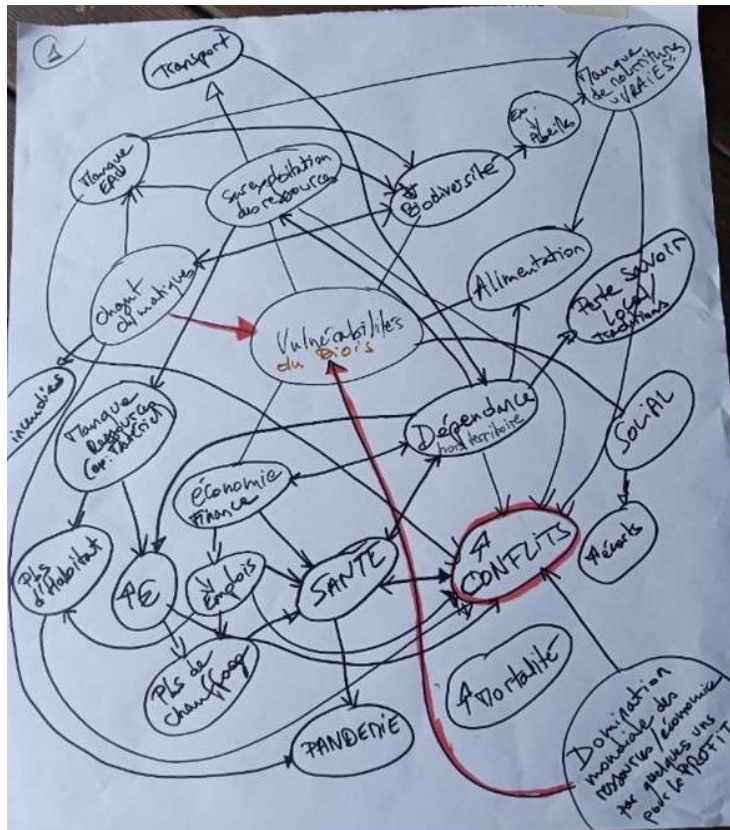 1
Transport
Manque
de nourriture
"VRAIES"
Ex:
↓
Abeilles
Manque
EAU
Surexploitation
des ressources
Biodiversité
Changt
climatiques
Alimentation
Perte Savoir
Local/
traditions
Vulnérabilités
du Diois
incendies
Manque
Ressources
(ex: Matériel
Dépendance
hors territoire
SOCIAL
économie
Finance
Pbs
d'Habitat
↑€
↓
Emplois
SANTÉ
↑
CONFLITS
↑écarts
Pbs de
chauffage
↑Mortalité
PANDEMIE
Domination
mondiale des
ressources/économie
par quelques uns
pour le PROFIT